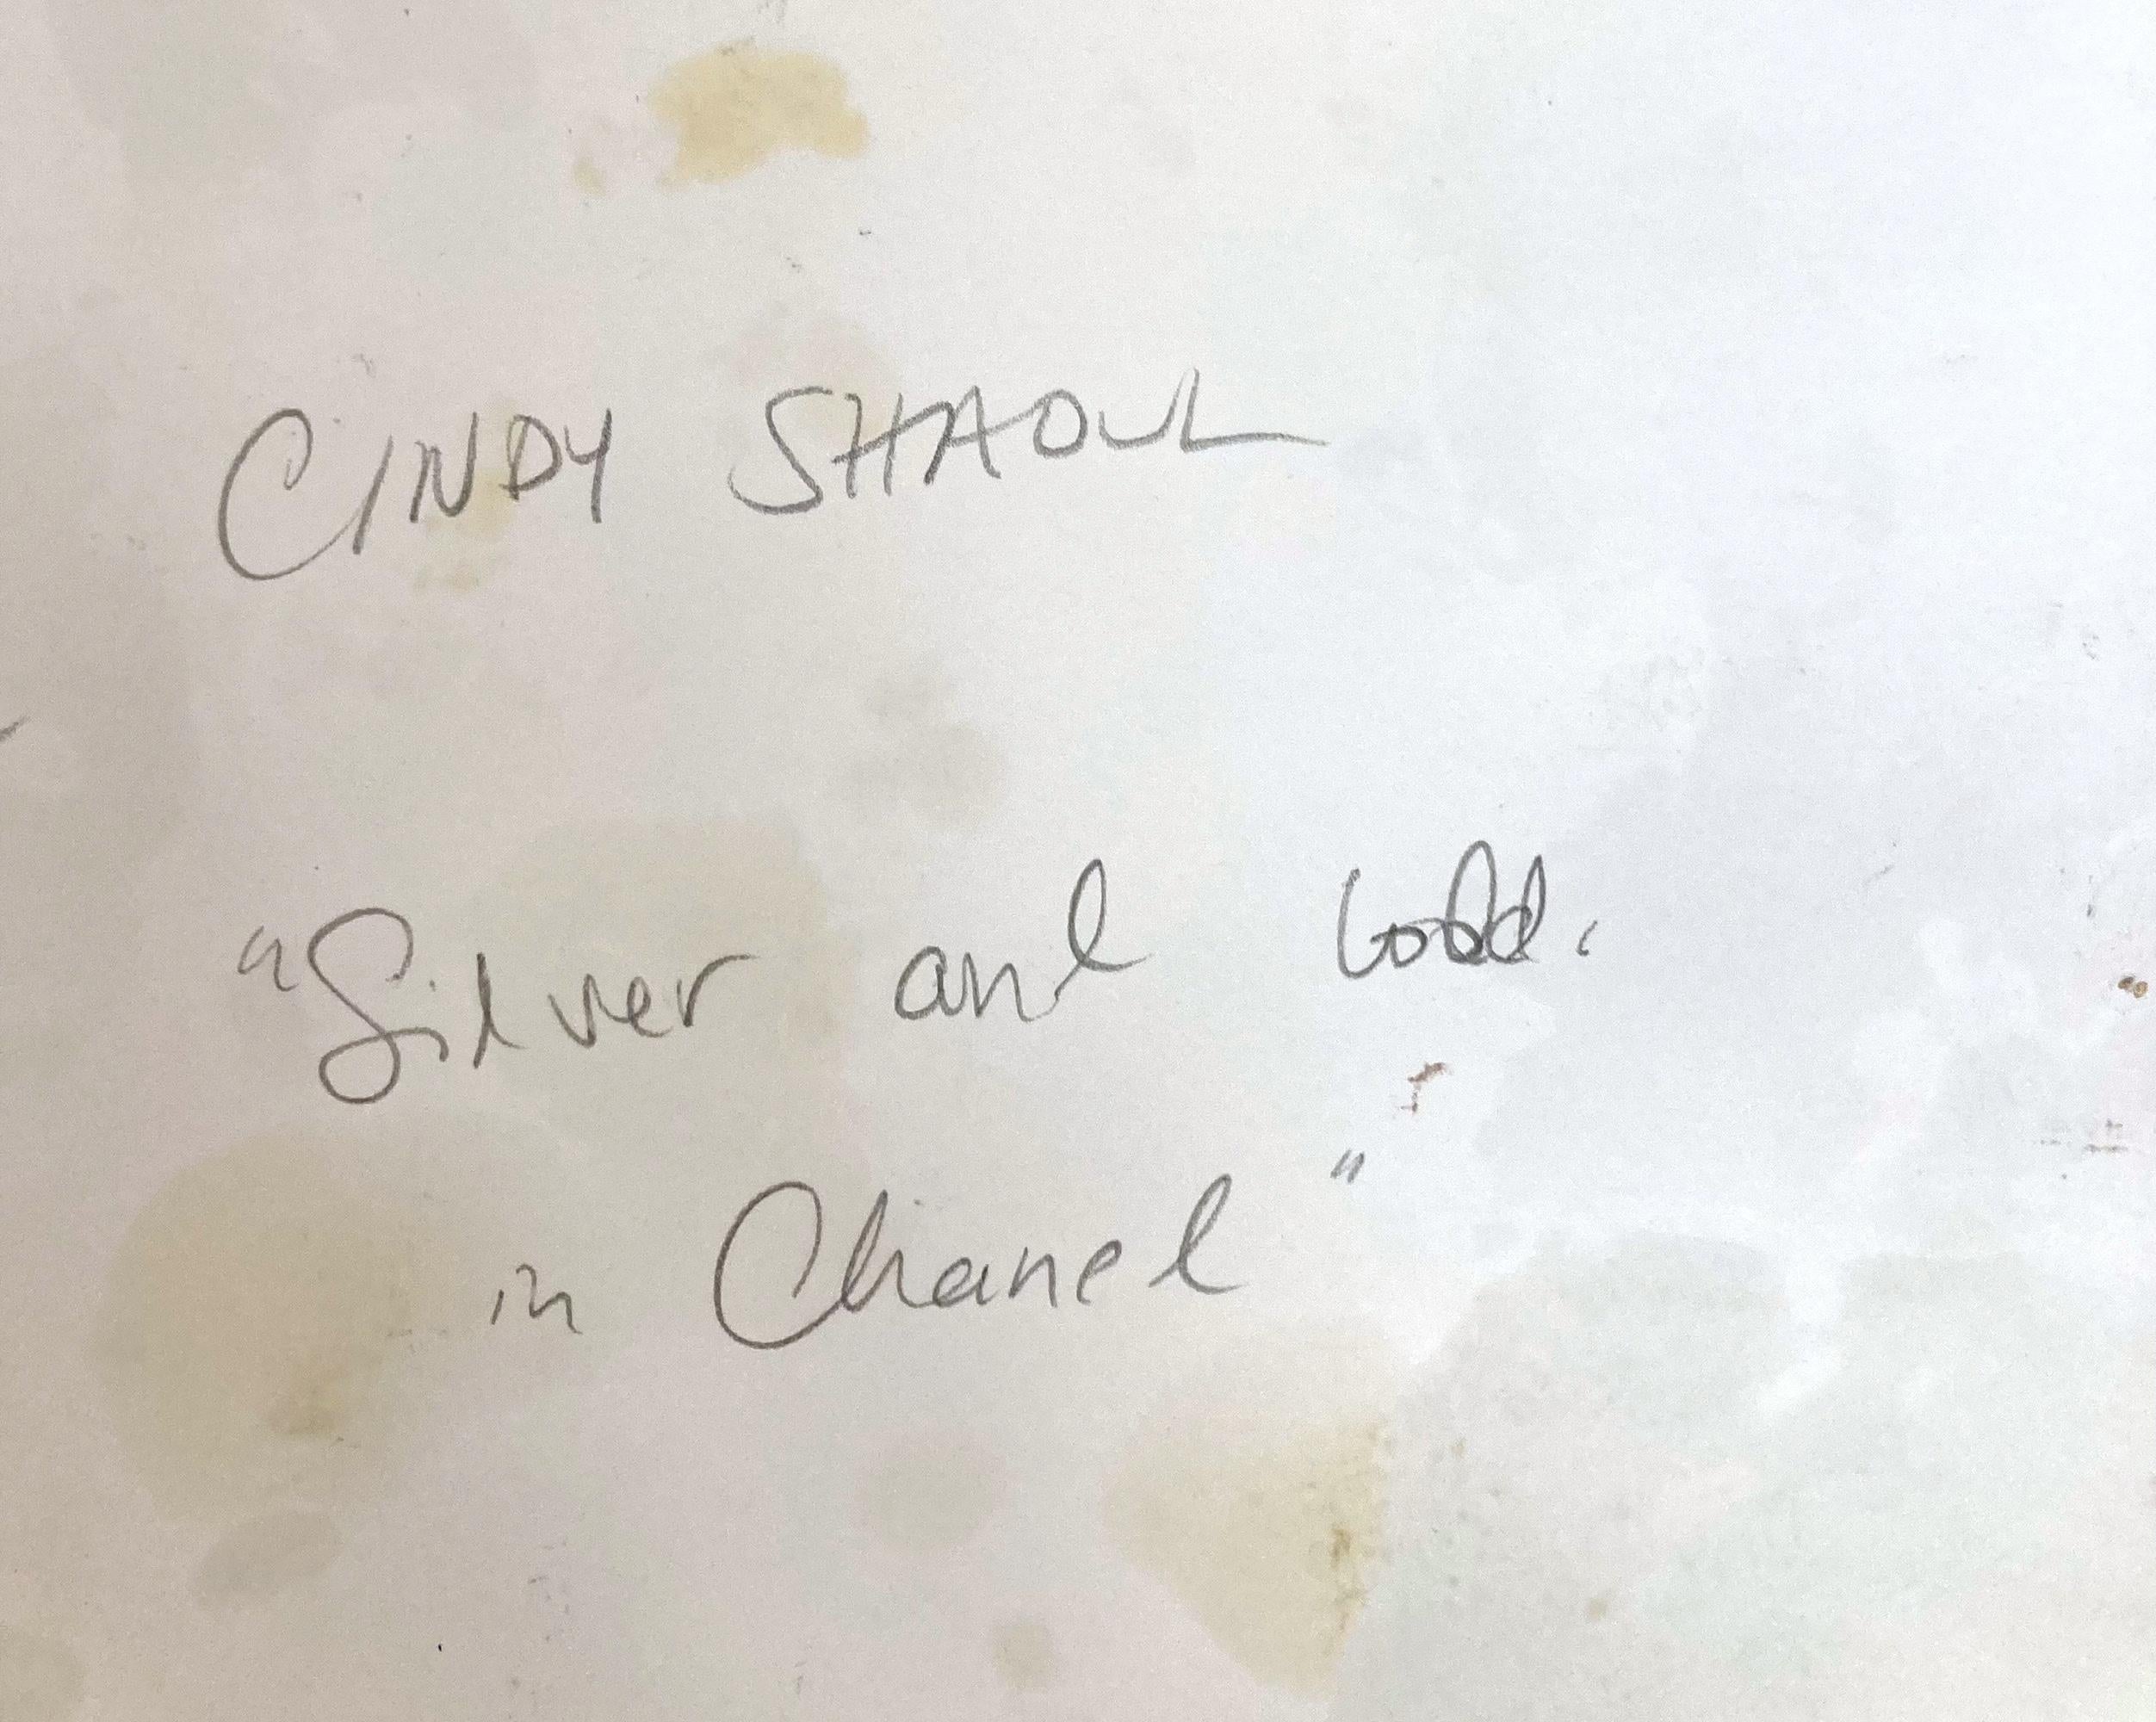 CINDY SHAOUL
"Silver and Gold.
in Chanel"